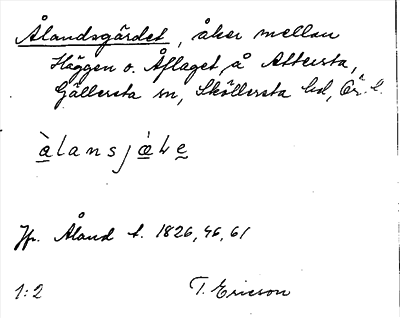 Ålandsgärdet, åker mellan
Häggen o. Åflaget, å Attersta,
Gällersta sn, Sköllersta hd, Ör. l.
Jfr. Åland t. 1826, 46, 61
1:2 T. Ericson